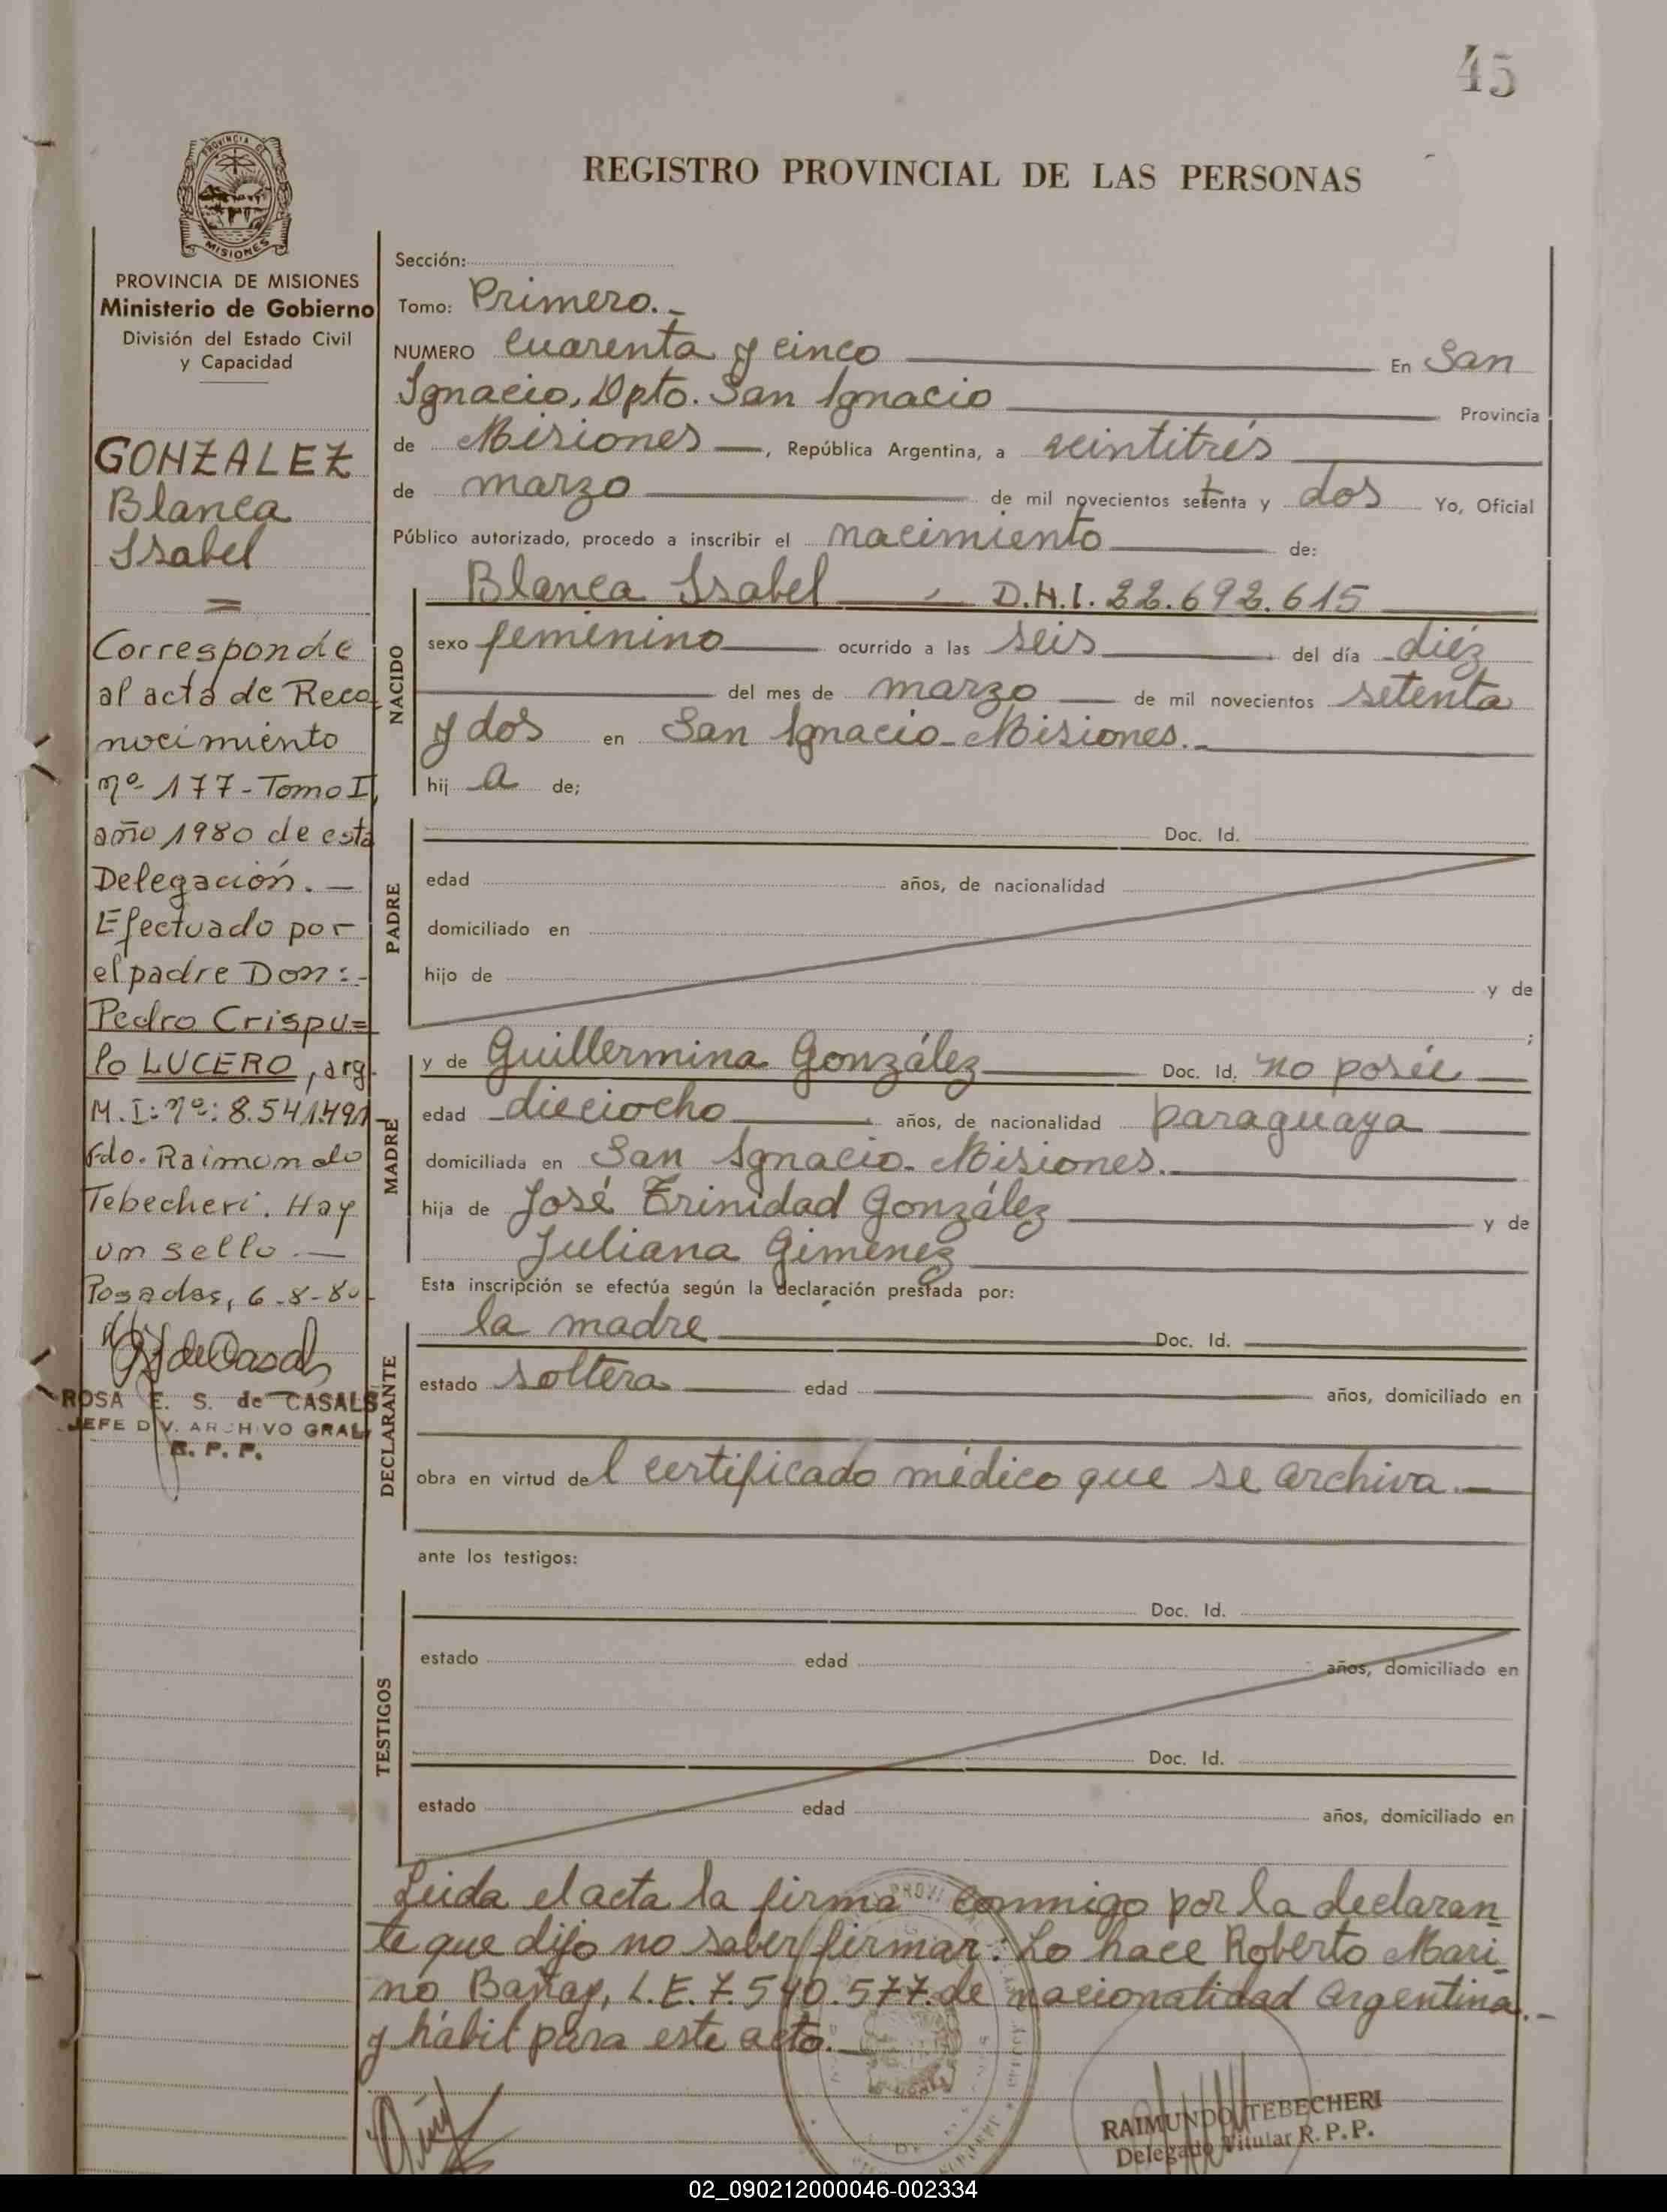 45
REGISTRO PROVINCIAL DE LAS PERSONAS
PROVINCIA DE MISIONES
Ministerio de Gobierno
División del Estado Civil
y Capacidad
GONZALEZ
Blanca
Isabel
=
Corresponde
al acta de Reco
nocimiento
nº 177-Tomo I,
año 1980 de esta
Delegación. —
Efectuado por
el padre Don:-
Pedro Crispu=
lo LUCERO, arg.
M.I: nº: 8.541.491-
Fdo. Raimundo
Tebecheri. Hay
un sello. —
Posadas, 6-8-80
ROSA E. S. de CASALS
JEFE DIV. ARCHIVO GRAL.
R. P. P.
Sección:
Tomo: Primero.-
NUMERO Cuarenta y cinco En San
Ignacio, Dpto. San Ignacio Provincia
de Misiones —, República Argentina, a veintitrés
de marzo de mil novecientos setenta y dos Yo, Oficial
Público autorizado, procedo a inscribir el nacimiento de:
NACIDO
Blanca Isabel — D.N.I. 22.692.615
sexo femenino ocurrido a las seis del día diéz
del mes de marzo de mil novecientos setenta
y dos en San Ignacio-Misiones.-
hij a de;
PADRE
Doc. Id.
edad años, de nacionalidad
domiciliado en
hijo de y de
;
MADRE
y de Guillermina González Doc. Id. no posée
edad dieciocho años, de nacionalidad paraguaya
domiciliada en San Ignacio-Misiones.
hija de José Trinidad González y de
Juliana Giménez
Esta inscripción se efectúa según la declaración prestada por:
DECLARANTE
la madre Doc. Id.
estado soltera edad años, domiciliado en
obra en virtud del certificado médico que se archiva.-
ante los testigos:
TESTIGOS
Doc. Id.
estado edad años, domiciliado en
Doc. Id.
estado edad años, domiciliado en
Leida el acta la firma conmigo por la declaran
te que dijo no saber firmar: Lo hace Roberto Mari
no L.E. 7.540.577. de nacionalidad argentina.-
y hábil para este acto.-
RAIMUNDO TEBECHERI
Delegado Titular R. P. P.
02_090212000046-002334